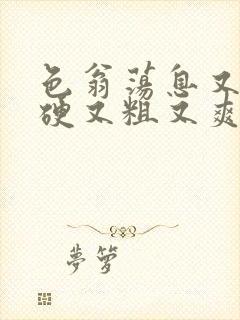 色翁荡息又
硬又粗又爽
夢箩